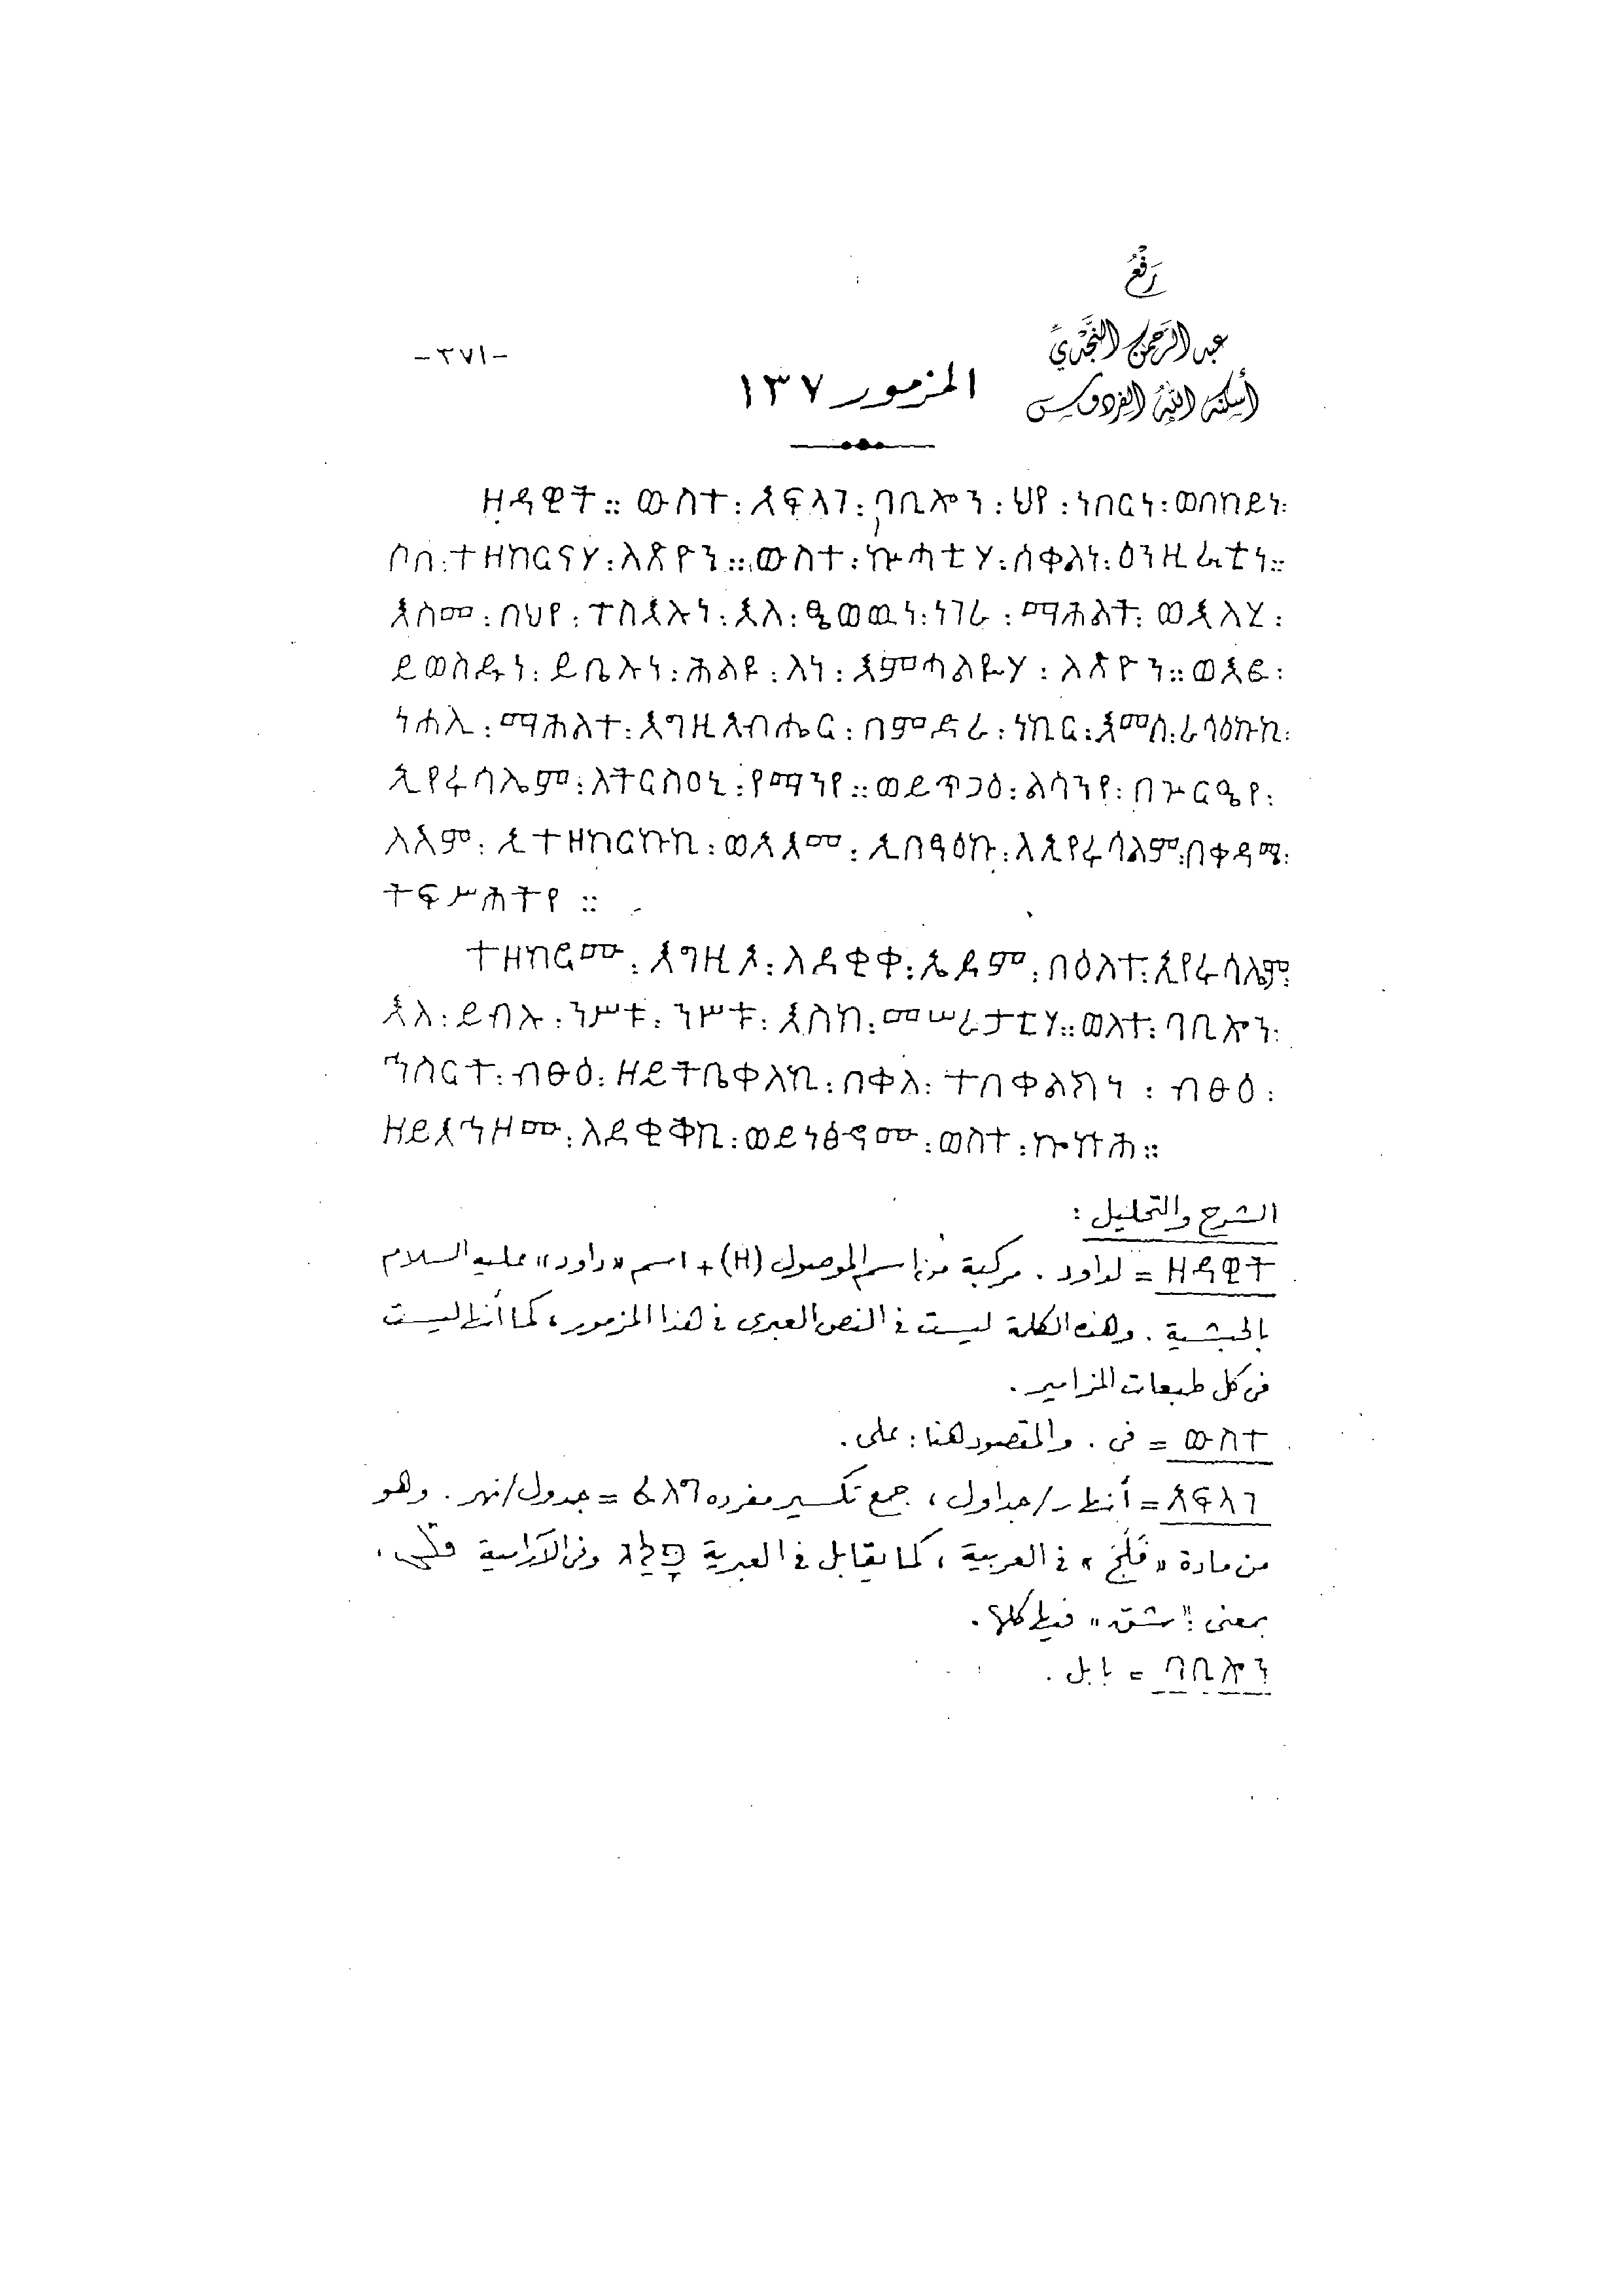 رَفْعُ
عبد الرحمن النَّجْدِيّ
أسكنه الله الفردوس
-٣٧١-
المزمور ١٣٧
ዘዳዊት ። ውስተ ፡ አፍላገ ፡ ባቢሎን ፡ ህየ ፡ ነበርነ ፡ ወበከይነ ፡
ሶበ ፡ ተዘከርናሃ ፡ ለጽዮን ። ውስተ ፡ ኲሓቲሃ ፡ ሰቀልነ ፡ ዕንዚራቲነ ።
እስመ ፡ በህየ ፡ ተስእሉነ ፡ እለ ፡ ፄወዉነ ፡ ነገራ ፡ ማሕልት ፡ ወእለሂ ፡
ይወስዱነ ፡ ይቤሉነ ፡ ሕልዩ ፡ ለነ ፡ እምሓልዪሃ ፡ ለጽዮን ። ወእፎ ፡
ነሐሊ ፡ ማሕልተ ፡ እግዚአብሔር ፡ በምድራ ፡ ነኪር ፡ እመሰ ፡ ራሳዕኩኪ ፡
ኢየሩሳሌም ፡ ለትርስዐኒ ፡ የማንየ ። ወይጥጋዕ ፡ ልሳንየ ፡ በጉርዔየ ፡
ለእም ፡ ኢተዘከርኩኪ ፡ ወእእመ ፡ ኢበፃዕኩ ፡ ለኢየሩሳልም ፡ በቀዳሚ ፡
ትፍሥሕትየ ።
ተዘከሮሙ ፡ እግዚኦ ፡ ለደቂቀ ፡ ኤዶም ፡ በዕለተ ፡ ኢየሩሳሌም ፡
እለ ፡ ይብሉ ፡ ንሥቱ ፡ ንሥቱ ፡ እስከ ፡ መሠረታቲሃ ። ወለተ ፡ ባቢሎን ፡
ኅስርት ፡ ብፁዕ ፡ ዘይትቤቀለኪ ፡ በቀለ ፡ ተበቀልክነ ፡ ብፁዕ ፡
ዘይእኅዞሙ ፡ ለደቂቅኪ ፡ ወይነፅኆሙ ፡ ወስተ ፡ ኰኵሕ ።
الشرح والتحليل :
ዘዳዊት = لداود . مركبة من اسم الموصول (ዘ) + اسم «داود» عليه السلام
بالحبشية . وهذه الكلمة ليست في النص العبرى في هذا المزمور، كما أنها ليست
فى كل طبعات المزامير .
ውስተ = فى . والمقصود هنا : على .
አፍላገ = أنهار/جداول ، جمع تكسير مفرده ፈለግ = جدول/نهر . وهو
من مادة «فَلَجَ» في العربية ، كما يقابل في العبرية פָּלַג وفى الآرامية ،
بمعنى : "شق" فيها كلها .
ባቢሎን = بابل .